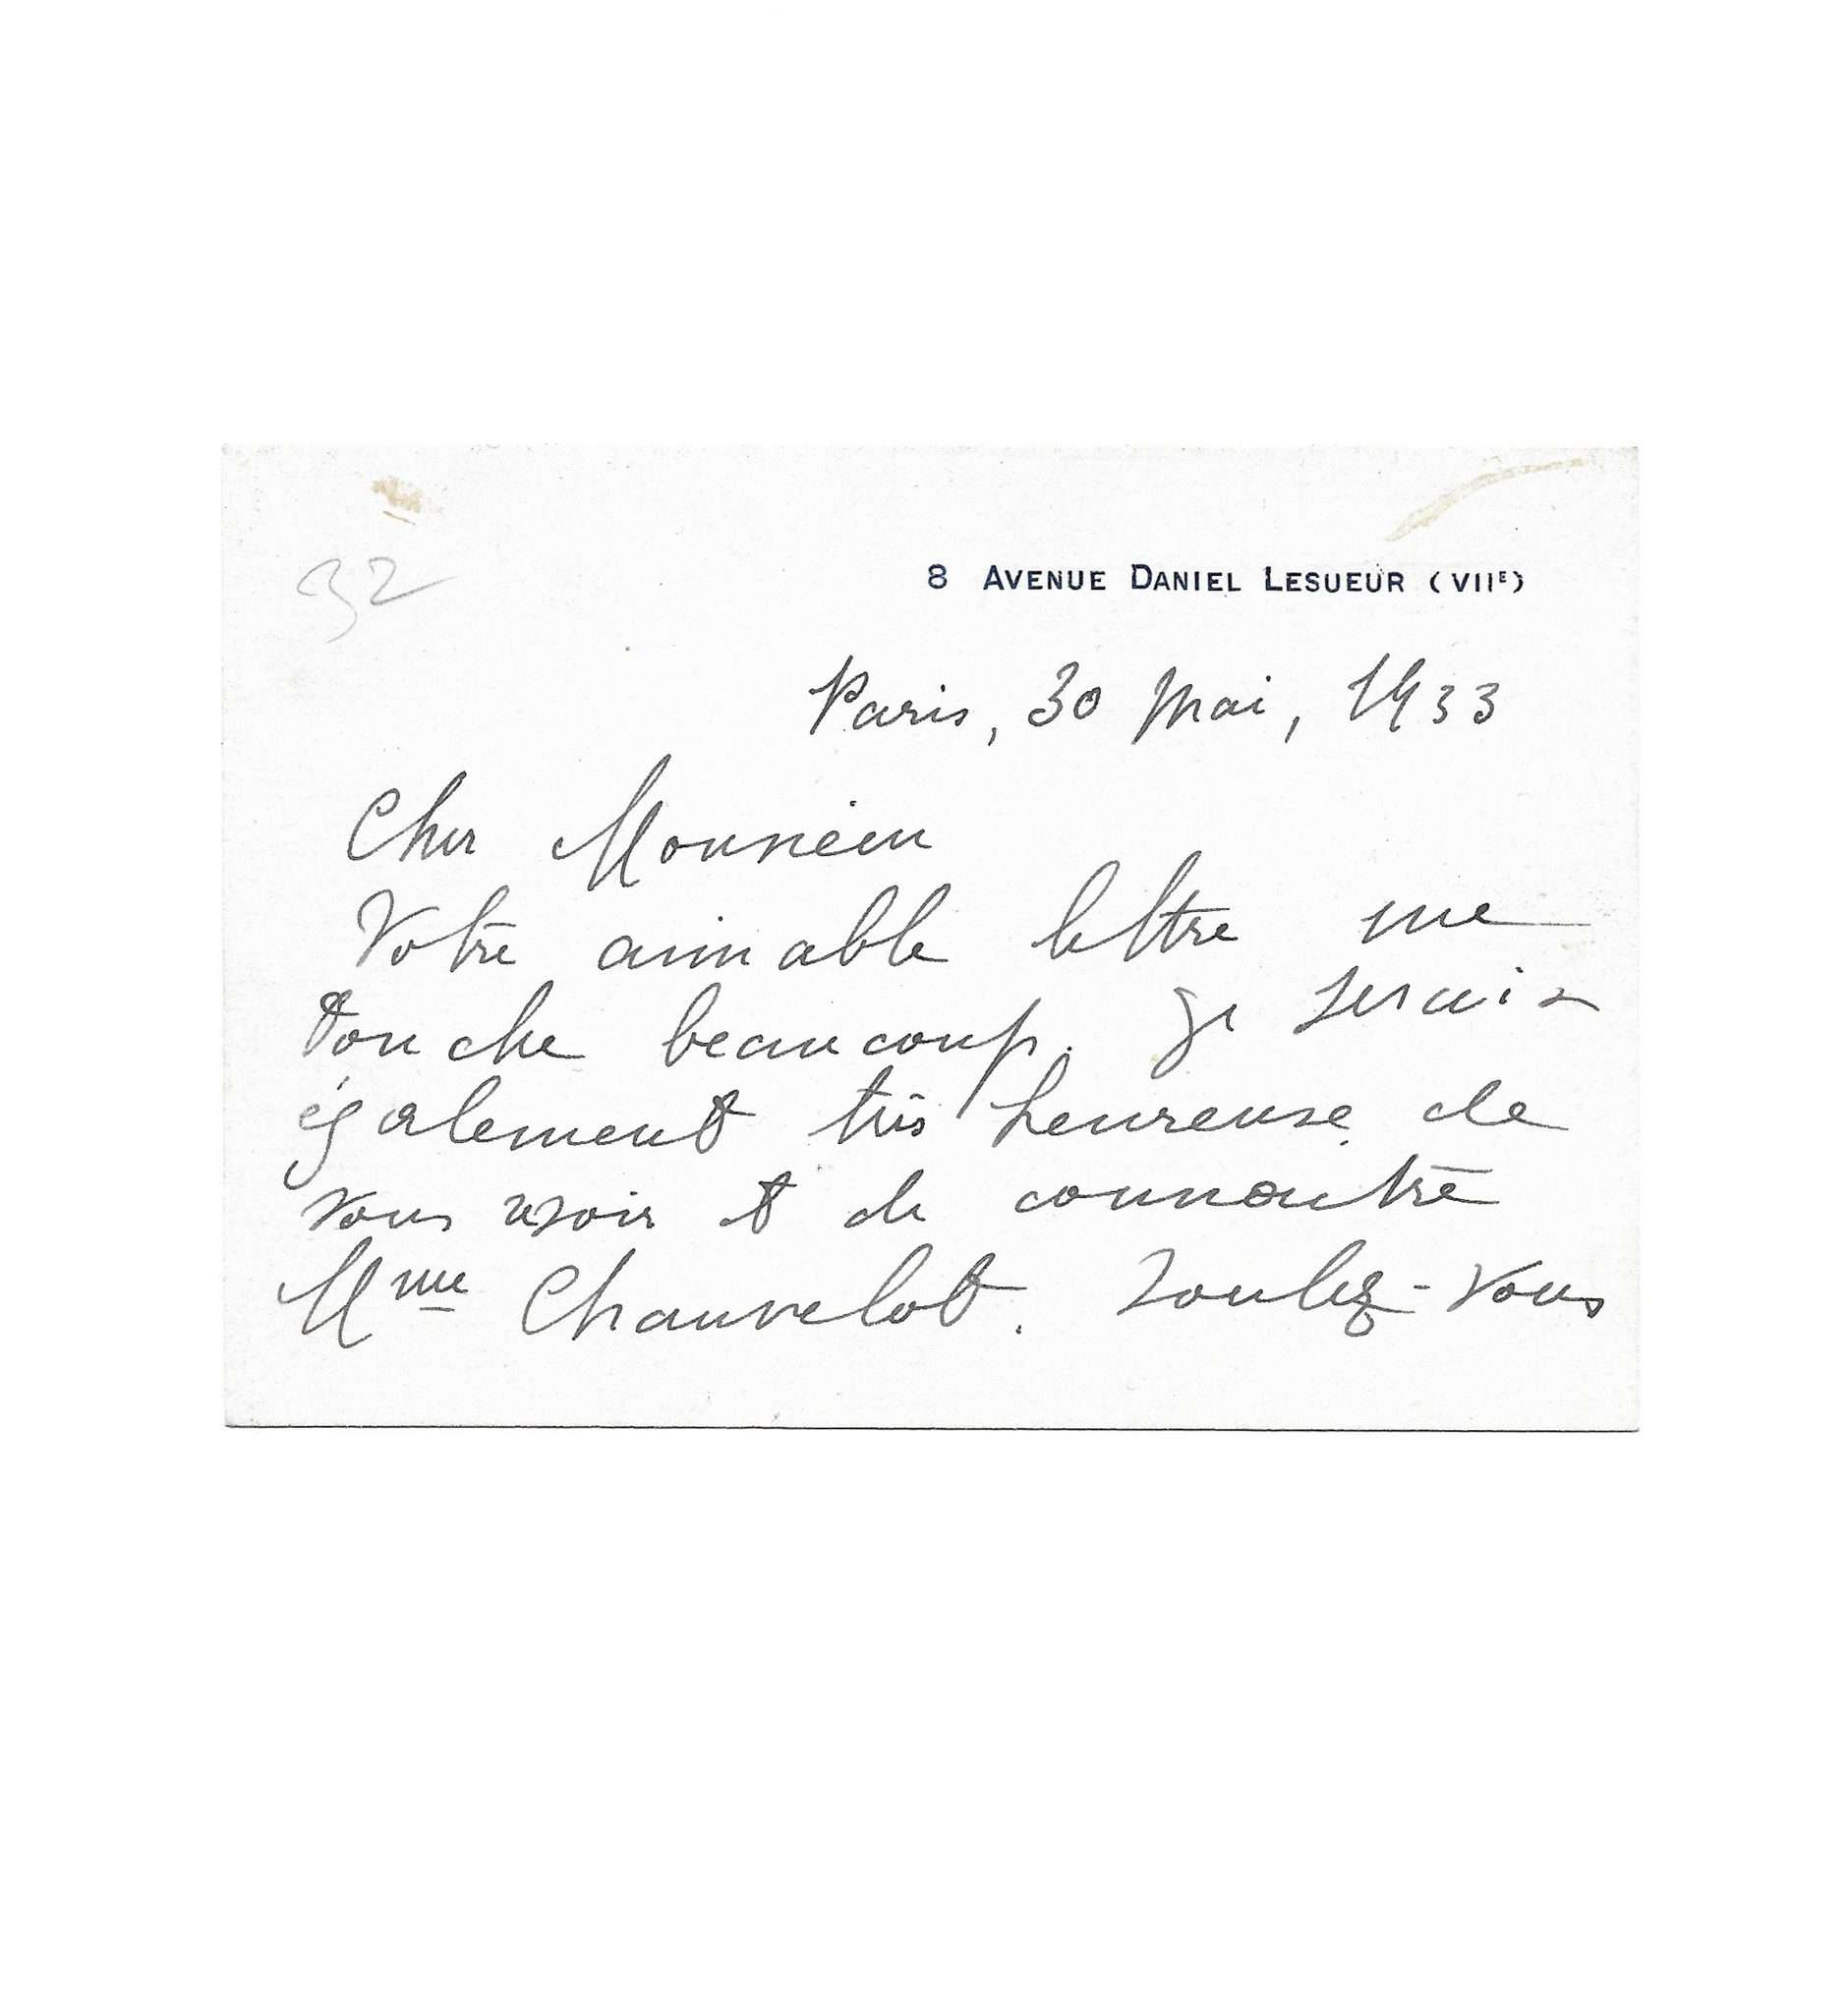 32
8 AVENUE DANIEL LESUEUR (VIIE)
Paris, 30 Mai, 1933
Cher Monsieur
Votre aimable lettre me
touche beaucoup. Je serais
également très heureuse de
vous revoir et de connaître
Mme Chauvelot. Voulez-vous